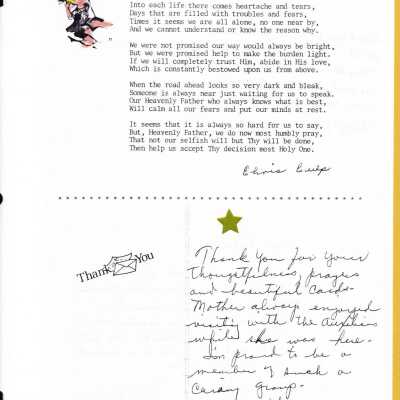 Into each life there comes heartache and tears,
Days that are filled with troubles and fears,
Times it seems we are all alone, no one near by,
And we cannot understand or know the reason why.
We were not promised our way would always be bright,
But we were promised help to make the burden light.
If we will completely trust Him, abide in His love,
Which is constantly bestowed upon us from above.
When the road ahead looks so very dark and bleak,
Someone is always near just waiting for us to speak.
Our Heavenly Father who always knows what is best,
Will calm all our fears and put our minds at rest.
It seems that it is always so hard for us to say,
But, Heavenly Father, we do now most humbly pray,
That not our selfish will but Thy will be done,
Then help us accept Thy decision most Holy One.
Thank You
Thank You for your
thoughtfulness, prayers
and beautiful Cards.
Mother always enjoyed
visiting with the
while she was here.
I'm proud to be a
member of such a
Caring Group.